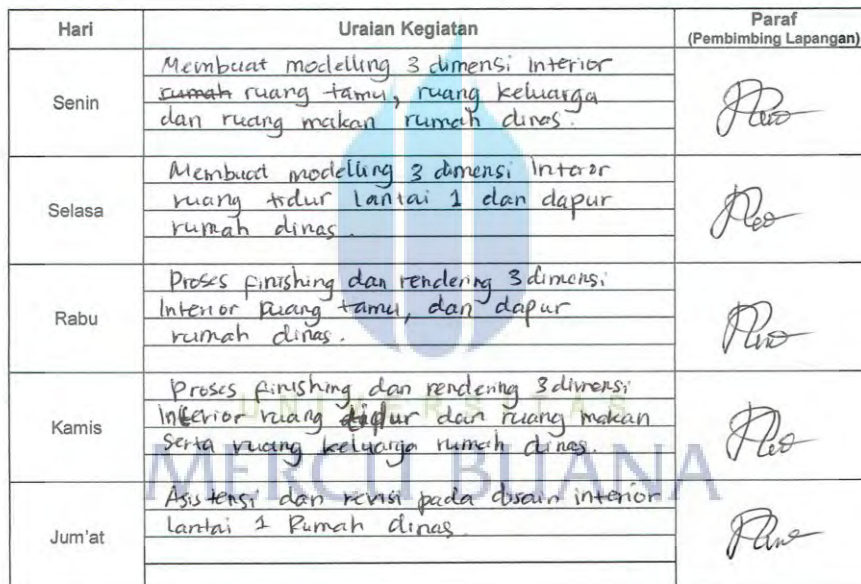 Hari Uraian Kegiatan Paraf
(Pembimbing Lapangan)
Senin
Membuat modelling 3 dimensi Interior
rumah ruang tamu, ruang keluarga
dan ruang makan rumah dinas.
Selasa
Membuat modelling 3 dimensi Interor
ruang tidur lantai 1 dan dapur
rumah dinas.
Rabu
Proses finishing dan rendering 3 dimensi
Interior Ruang tamu, dan dapur
rumah dinas.
Kamis
Proses finishing dan rendering 3 dimensi
Interior ruang tidur dan ruang makan
Serta ruang keluarga rumah dinas.
Jum'at
Asistensi dan revisi pada disain interior
lantai 1 Rumah dinas
UNIVERSITAS
MERCU BUANA